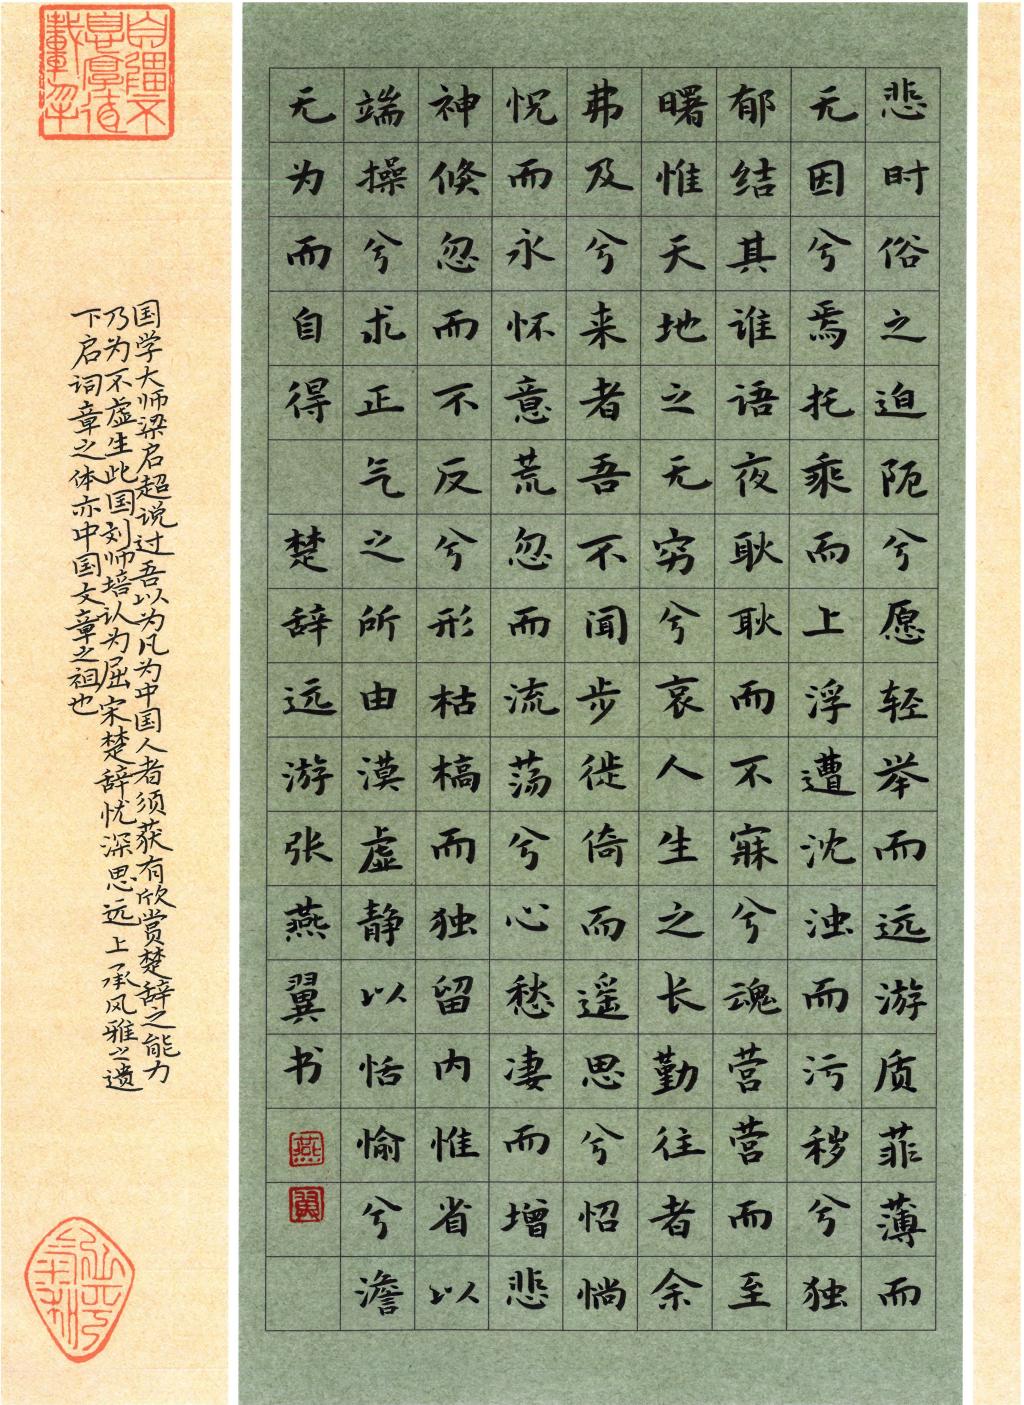 悲时俗之迫阨兮愿轻举而远游质菲薄而
无因兮焉托乘而上浮遭沈浊而污秽兮独
郁结其谁语夜耿耿而不寐兮魂营营而至
曙惟天地之无穷兮哀人生之长勤往者余
弗及兮来者吾不闻步徙倚而遥思兮怊惝
怳而永怀意荒忽而流荡兮心愁凄而增悲
神倏忽而不反兮形枯槁而独留内惟省以
端操兮求正气之所由漠虚静以恬愉兮澹
无为而自得 楚辞远游张燕翼书
燕
翼
国学大师梁启超说过吾以为凡为中国人者须获有欣赏楚辞之能力
乃为不虚生此国刘师培认为屈宋楚辞忧深思远上承风雅之遗
下启词章之体亦中国文章之祖也
自强不息厚德载物